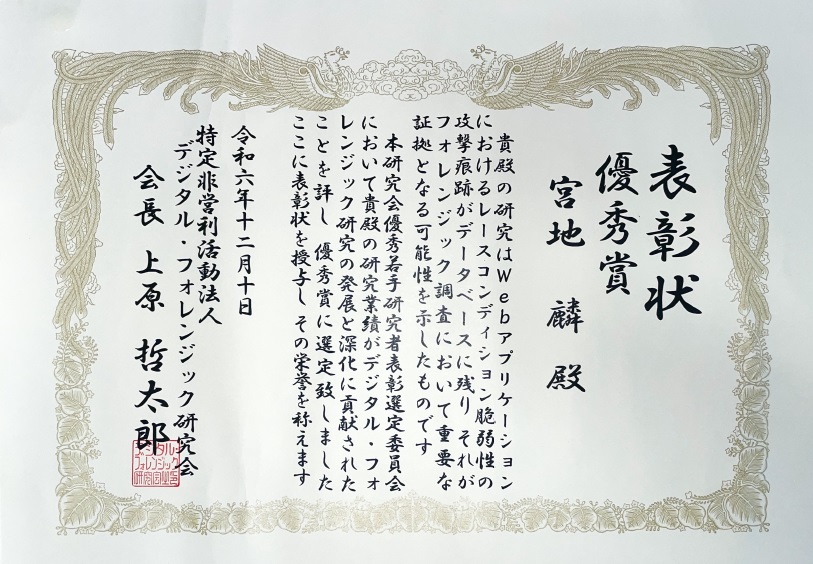 表彰状
優秀賞
宮地 麟 殿
貴殿の研究はWebアプリケーション
におけるレースコンディション脆弱性の
攻撃痕跡がデータベースに残り それが
フォレンジック調査において重要な
証拠となる可能性を示したものです
本研究会優秀若手研究者表彰選定委員会
において貴殿の研究業績がデジタル・フォ
レンジック研究の発展と深化に貢献された
ことを評し 優秀賞に選定致しました
ここに表彰状を授与し その栄誉を称えます
令和六年十二月十日
特定非営利活動法人
デジタル・フォレンジック研究会
会長 上原 哲太郎
デジタル・
フォレンジック